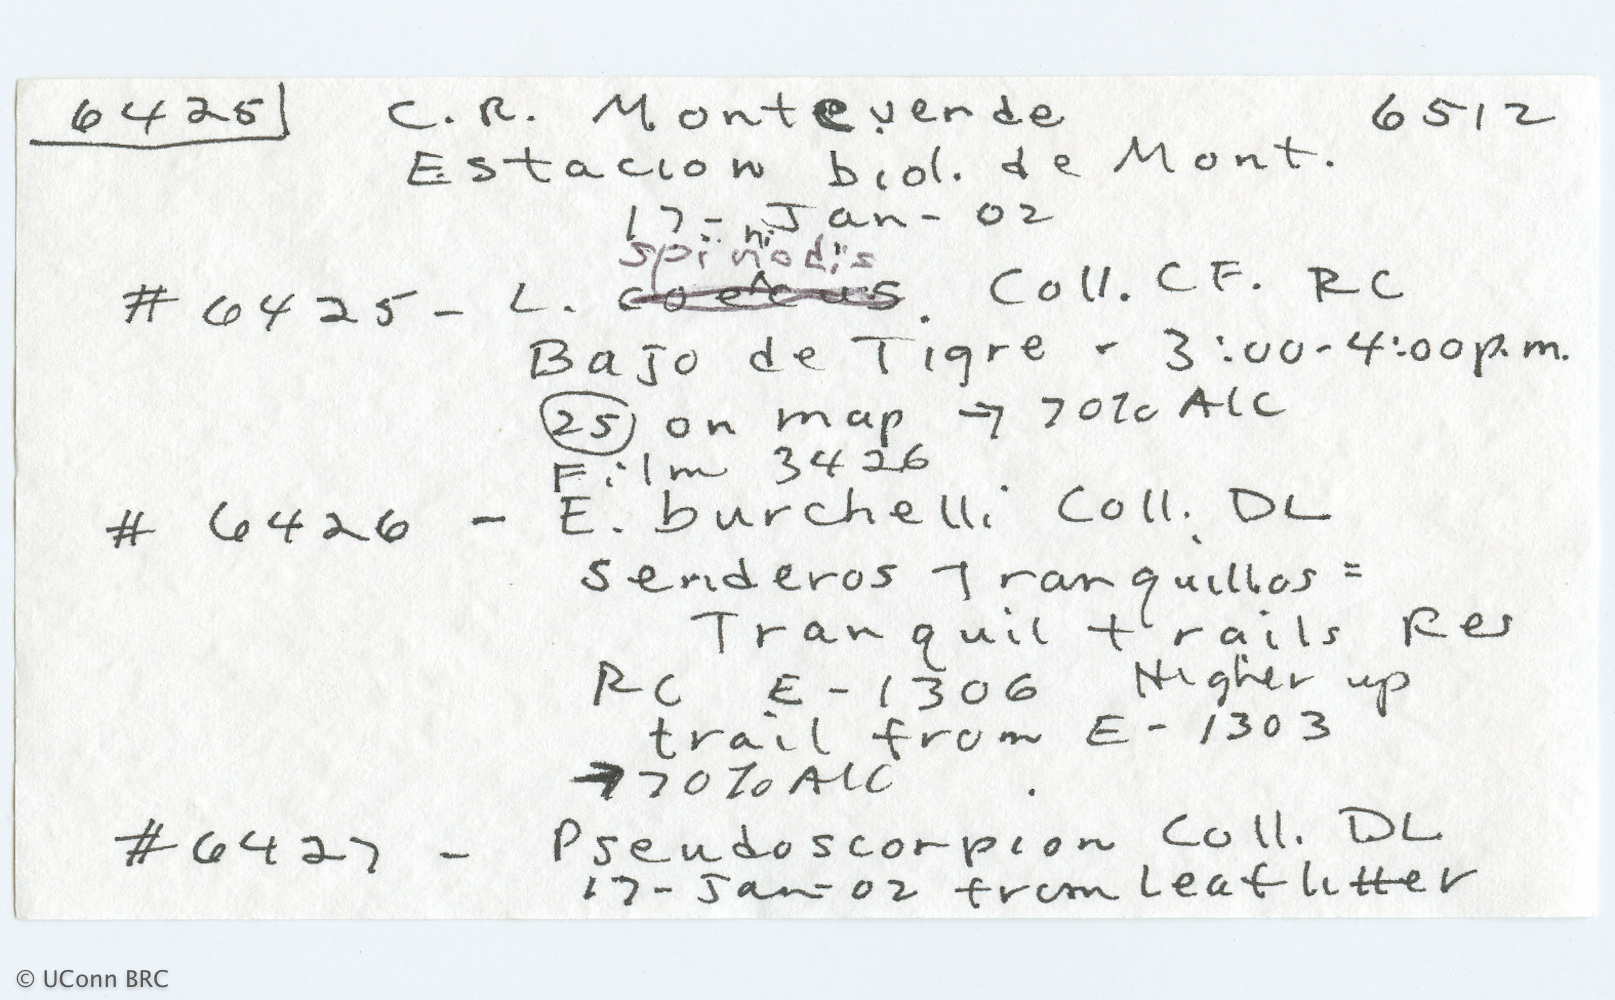 6425 C.R. Monteverde 6512
Estacion biol. de Mont.
17-Jan-02
spininodis
#6425- L. coecus. Coll. CF. RC
Bajo de Tigre - 3:00-4:00p.m.
25 on map → 70% Alc
Film 3426
# 6426 - E. burchelli Coll. DL
Senderos Tranquillos =
Tranquil trails Res
RC E-1306 Higher up
trail from E-1303
→70% Alc.
#6427 - Pseudoscorpion Coll. DL
17-Jan-02 from Leaf litter
© UConn BRC